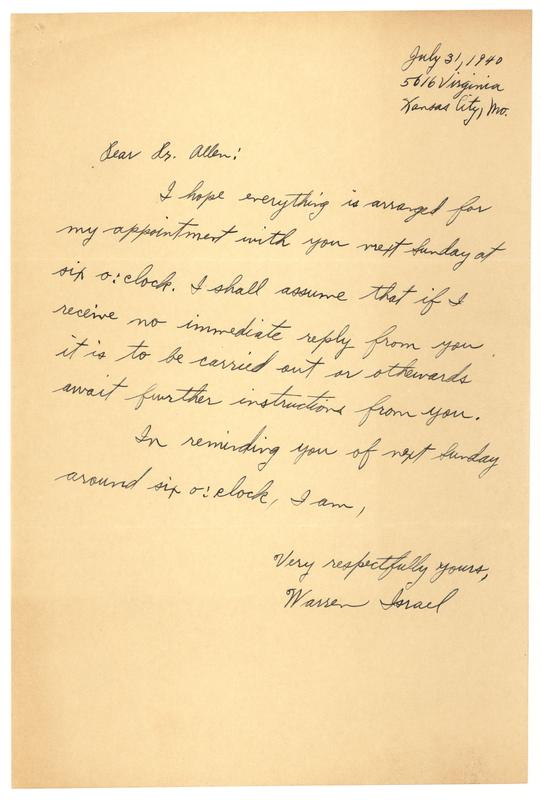 July 31, 1940
5616 Virginia
Kansas City, Mo.
Dear Dr. Allen:
I hope everything is arranged for
my appointment with you next Sunday at
six o:clock. I shall assume that if I
receive no immediate reply from you
it is to be carried out or othewards
await further instructions from you.
In reminding you of next Sunday
around six o:clock, I am,
Very respectfully yours,
Warren Israel